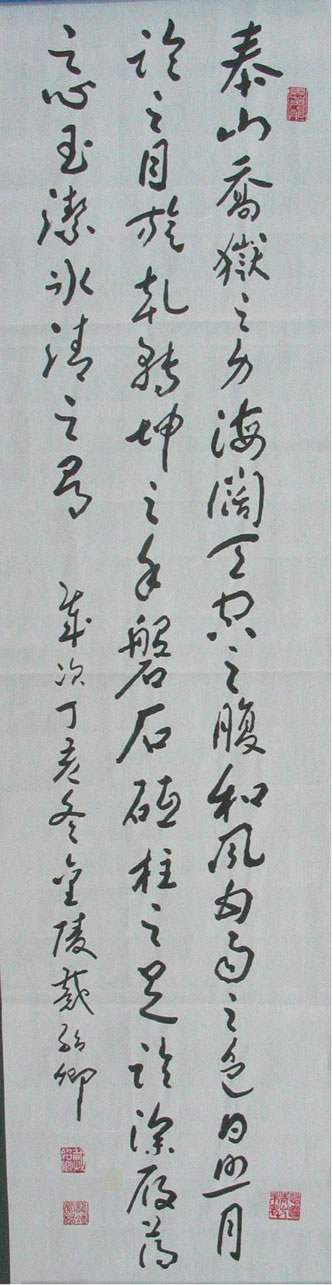 泰山喬嶽之身海闊天空之腹和風甘雨之色日照月
臨之目旋乾轉坤之手磐石砥柱之足臨深履薄
之心玉潔冰清之骨
歲次丁亥冬金陵戴卿